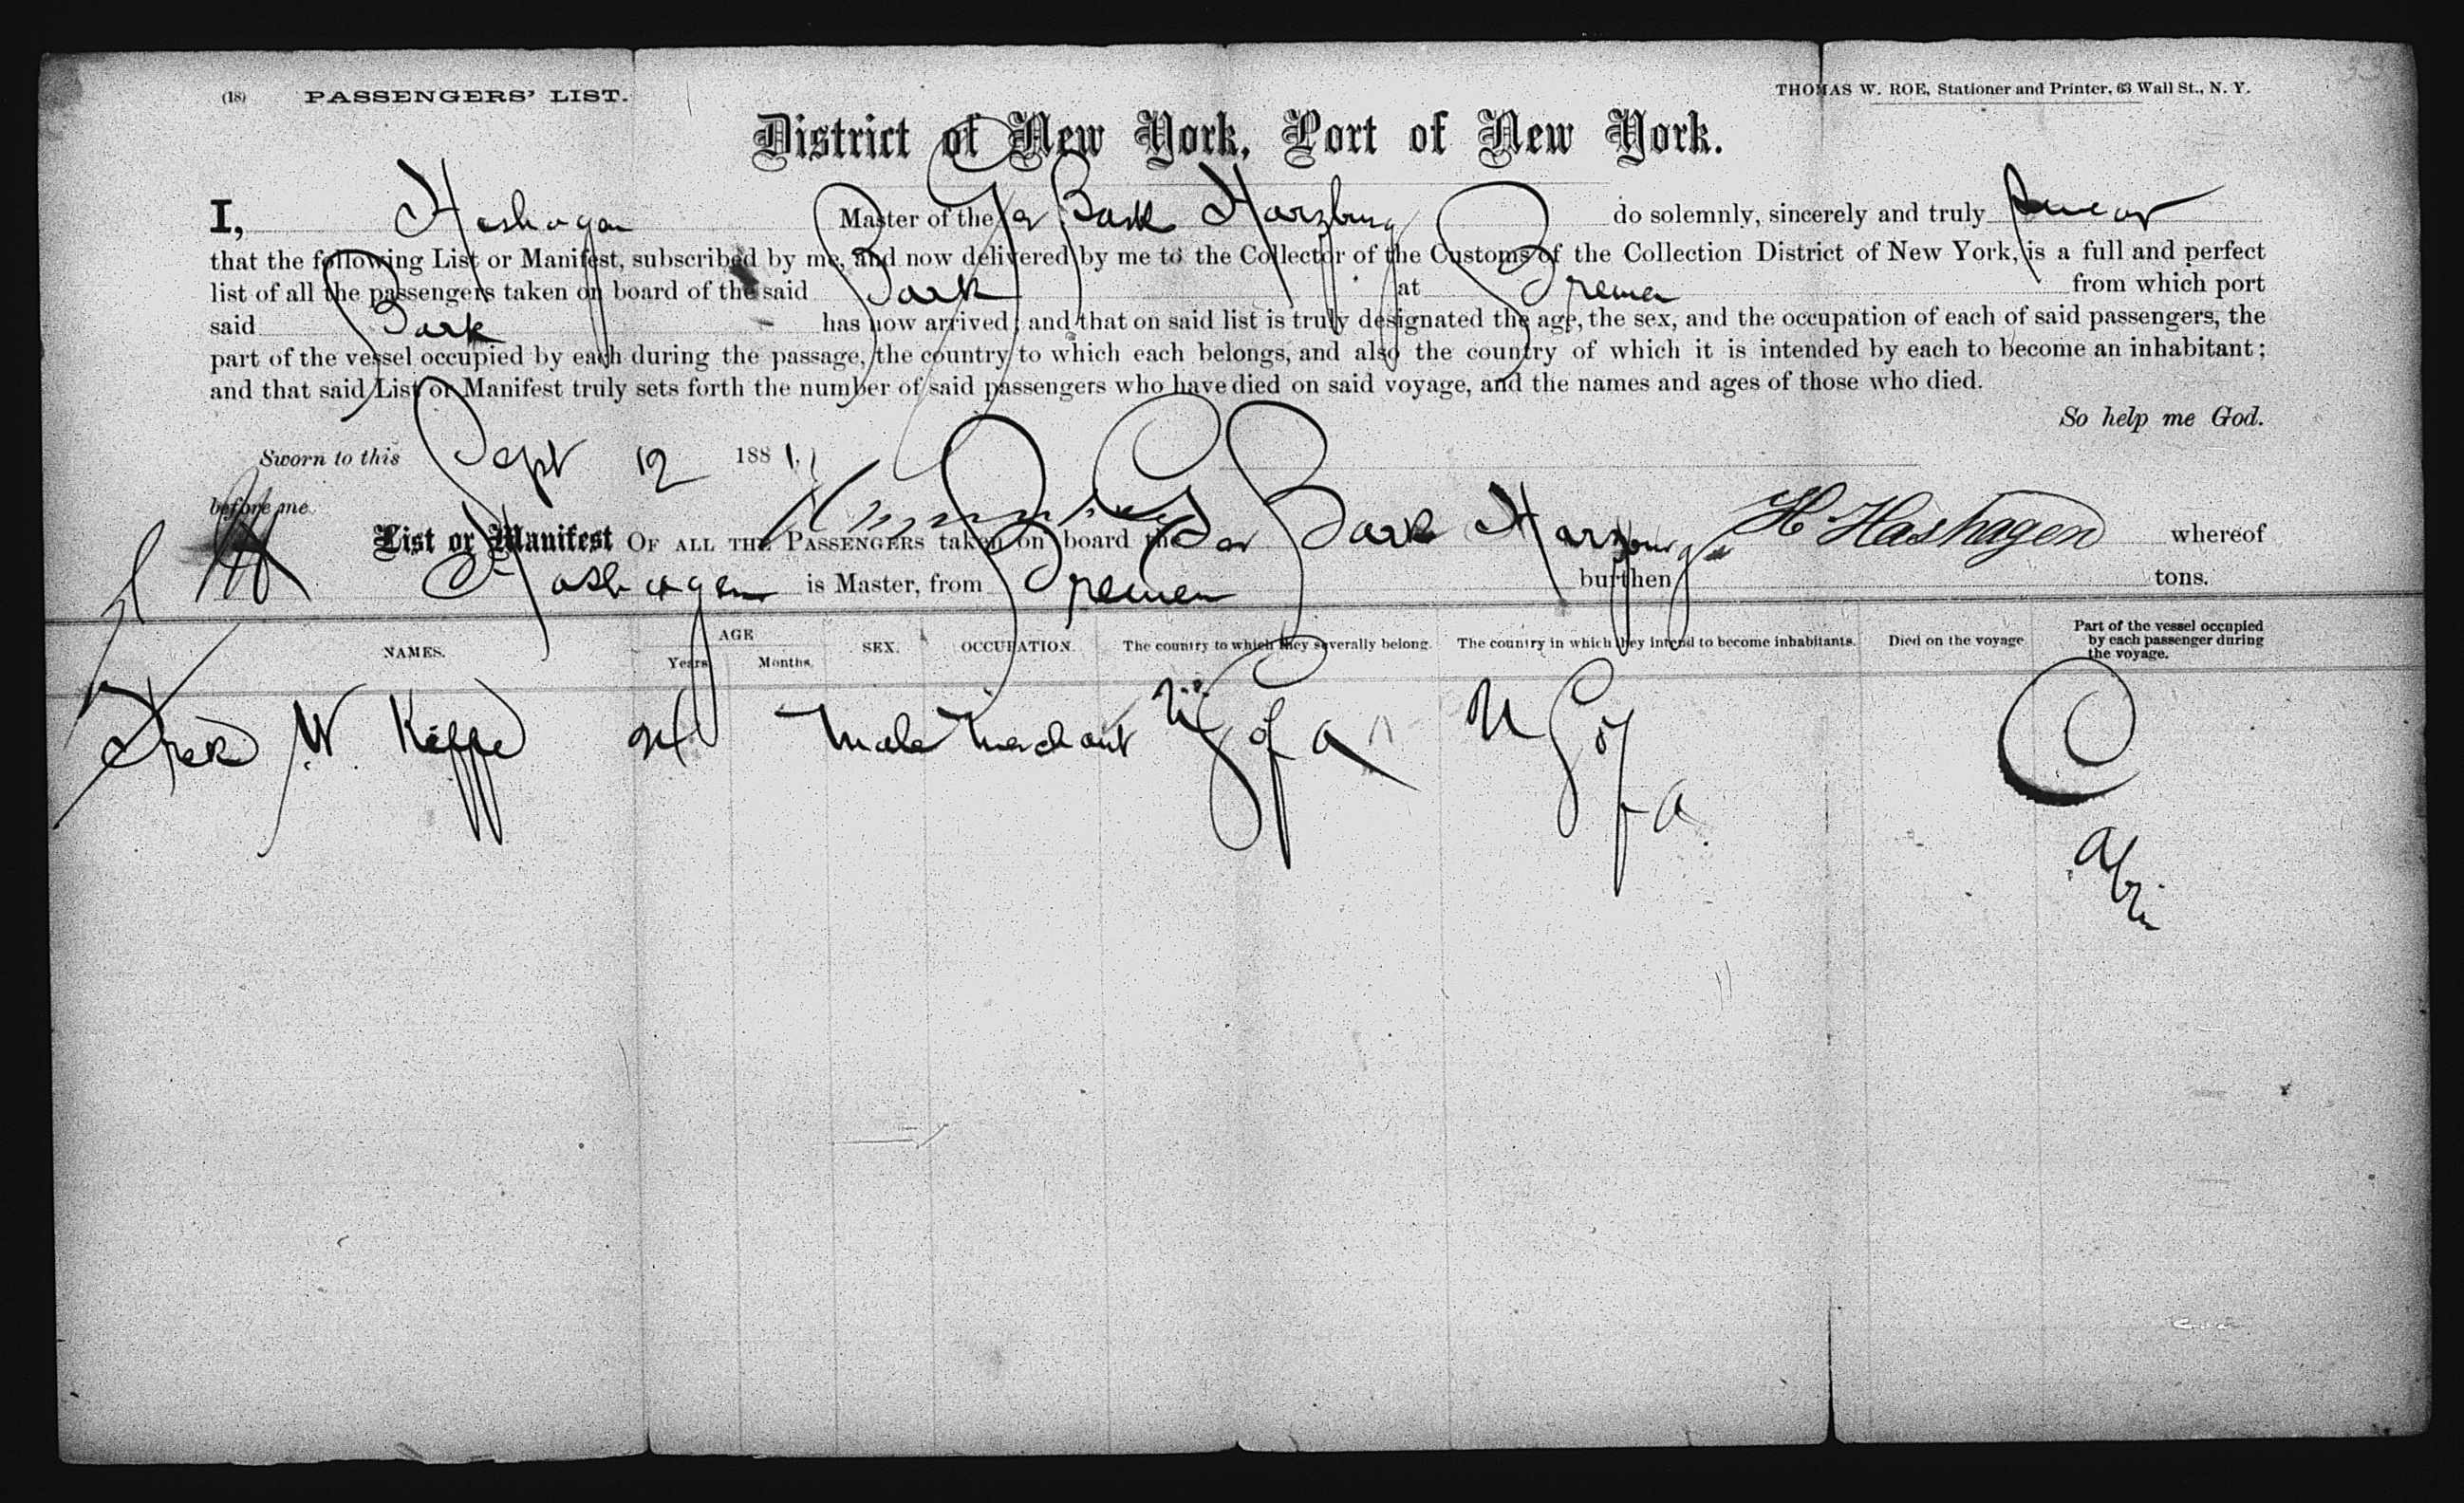 (18) PASSENGERS' LIST.
THOMAS W. ROE, Stationer and Printer, 63 Wall St., N. Y.
District of New York, Port of New York.
I, Hashagen Master of the Ger Bark Harzburg do solemnly, sincerely and truly swear
that the following List or Manifest, subscribed by me, and now delivered by me to the Collector of the Customs of the Collection District of New York, is a full and perfect
list of all the passengers taken on board of the said Bark at Bremen from which port
said Bark has now arrived; and that on said list is truly designated the age, the sex, and the occupation of each of said passengers, the
part of the vessel occupied by each during the passage, the country to which each belongs, and also the country of which it is intended by each to become an inhabitant;
and that said List or Manifest truly sets forth the number of said passengers who have died on said voyage, and the names and ages of those who died.
So help me God.
Sworn to this Sept 12 1881.
before me
H Hashagen
List or Manifest OF ALL THE PASSENGERS taken on board the Ger Bark Harzburg whereof
Hashagen is Master, from Bremen burthen tons.
NAMES. AGE Years Months. SEX. OCCUPATION. The country to which they severally belong. The country in which they intend to become inhabitants. Died on the voyage Part of the vessel occupied by each passenger during the voyage.
Fred W. Keppe 24 Male Merchant U S of A U S of A Cabin